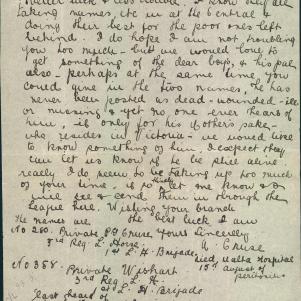 taking names, etc in at the Central &
doing their best for the poor ones left
behind. I do hope I am not troubling
you too much - but we would love to
get something of the dear boys, & his pal
also - perhaps at the same time you
could give in the two names, he has
never been posted as dead - wounded - ill
or missing & yet no one ever hears of
him - is only for his mother's sake -
who resides in Victoria - we would love
to know something of him. I expect they
can let us know if he be still alive.
really I do seem to be taking up too much
of your time, if so let me know &
will see & send them in through the
League here. Wishing your branch
The names are the best luck I am
No 260. Private P G Cruse Yours Sincerely
3rd Reg L. Horse, A Cruse
1st L. H Brigade, died, Malta Hospital
15th August of
No 358. Private Wishart peritonitis
3rd Reg L. H.
1st L. H. Brigade
last heard of